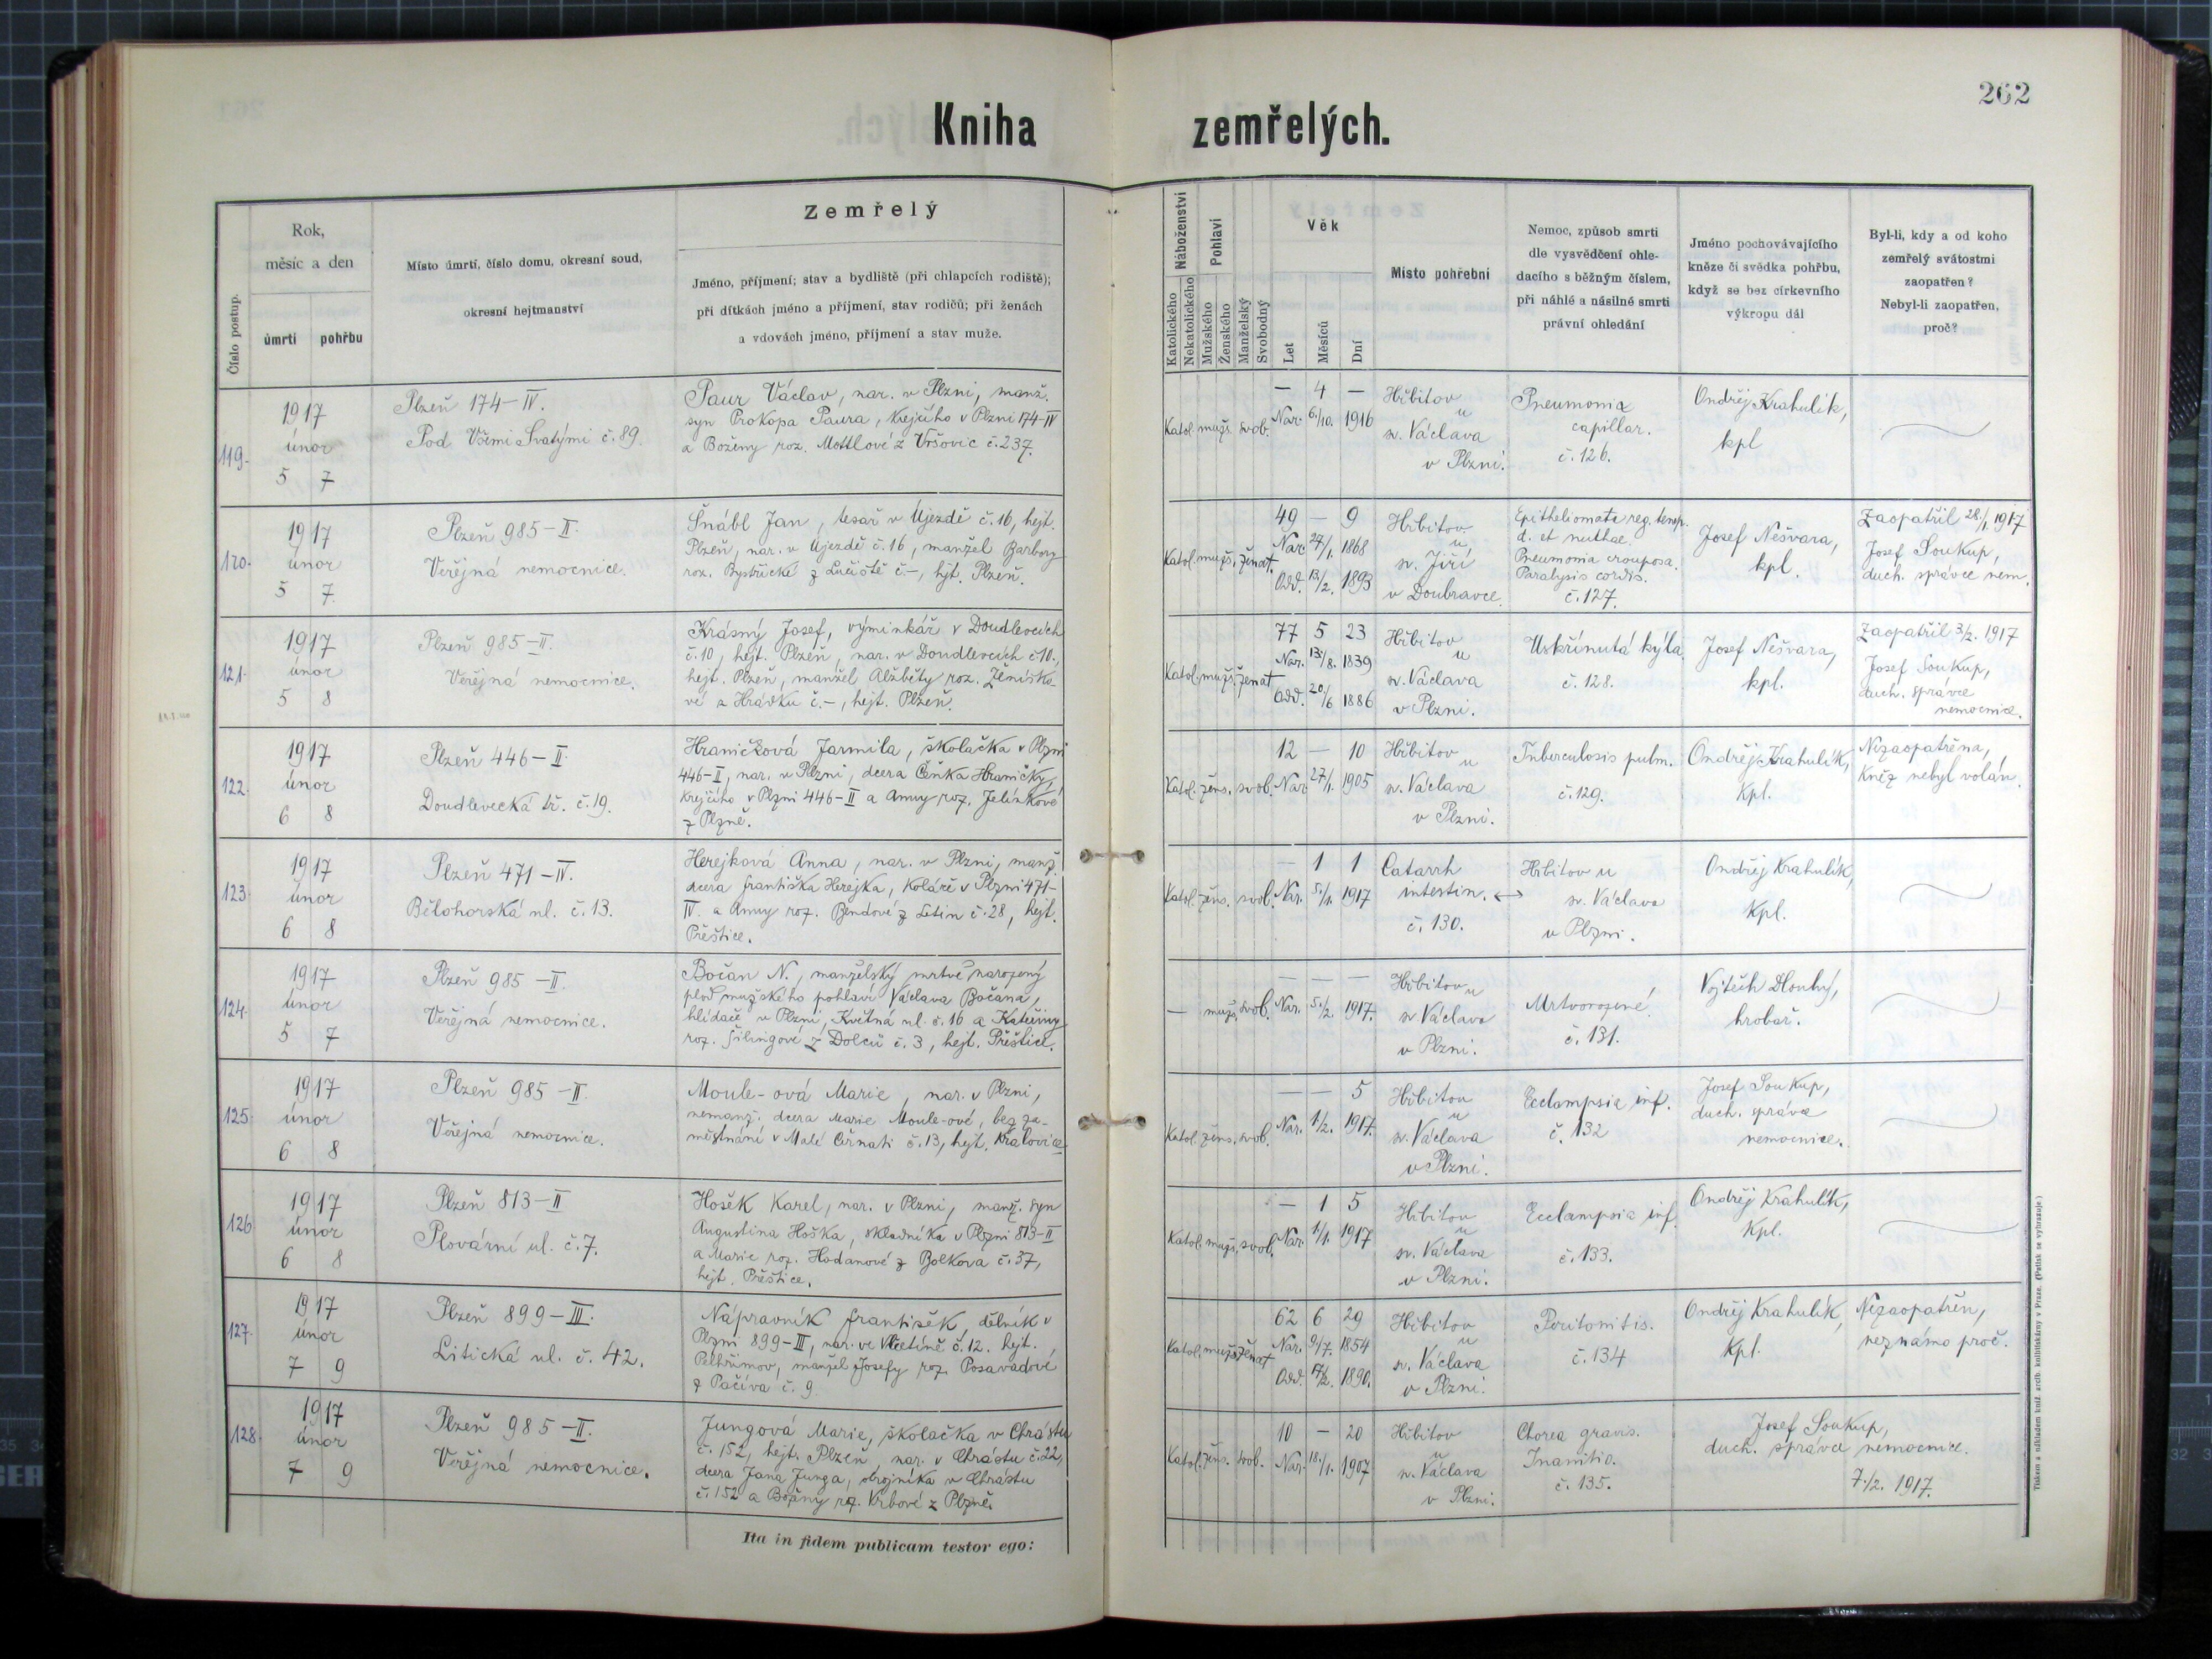 262
Kniha zemřelých.
Číslo postup.
Rok,
měsíc a den
úmrtí
pohřbu
Místo úmrtí, číslo domu, okresní soud,
okresní hejtmanství
Zemřelý
Jméno, příjmení; stav a bydliště (při chlapcích rodiště);
při dítkách jméno a příjmení, stav rodičů; při ženách
a vdovách jméno, příjmení a stav muže.
Náboženství
Katolického
Nekatolického
Pohlaví
Mužského
Ženského
Manželský
Svobodný
Věk
Let
Měsíců
Dní
Místo pohřební
Nemoc, způsob smrti
dle vysvědčení ohle-
dacího s běžným číslem,
při náhlé a násilné smrti
právní ohledání
Jméno pochovávajícího
kněze či svědka pohřbu,
když se bez církevního
výkropu dál
Byl-li, kdy a od koho
zemřelý svátostmi
zaopatřen?
Nebyl-li zaopatřen,
proč?
119.
1917
únor
5 7
Plzeň 174-IV.
Pod Všemi Svatými č. 89.
Paur Václav, nar. v Plzni, manž.
syn Prokopa Paura, krejčího v Plzni 174-IV
a Boženy roz. Mottlové z Vršovic č. 237.
Katol. muž. svob.
— 4 —
Nar. 6./10. 1916
Hřbitov
u
sv. Václava
v Plzni.
Pneumonia
capillar.
č. 126.
Ondřej Krahulík,
kpl
120.
1917
únor
5 7.
Plzeň 985-II.
Veřejná nemocnice.
Šnábl Jan, tesař v Újezdě č. 16, hejt.
Plzeň, nar. v Újezdě č. 16, manžel Barbory
roz. Bystřické z Lučiště č. -, hjt. Plzeň.
Katol. muž. ženat.
49 — 9
Nar. 27/1. 1868
Odd. 13./2. 1893
Hřbitov
u
sv. Jiří
v Doubravce.
Epitheliomata reg. temp.
d. et nuchae.
Pneumonia crouposa.
Paralysis cordis.
č. 127.
Josef Nešvara,
kpl.
Zaopatřil 28./1. 1917
Josef Soukup,
duch. správce nem.
121.
1917
únor
5 8
Plzeň 985-II.
Veřejná nemocnice.
Krásný Josef, výminkář v Doudlevcích
č. 10, hejt. Plzeň, nar. v Doudlevcích č 10.,
hejt. Plzeň, manžel Alžběty roz. Ženíško-
vé z Hrádku č. -, hejt. Plzeň.
Katol. muž. ženat
77 5 23
Nar. 13./8. 1839
Odd. 20/6 1886
Hřbitov
u
sv. Václava
v Plzni.
Uskřinutá kýla.
č. 128.
Josef Nešvara,
kpl.
Zaopatřil 3/2. 1917
Josef Soukup,
duch. správce
nemocnice.
122.
1917
únor
6 8
Plzeň 446-II.
Doudlevecká tř. č. 19.
Hraničková Jarmila, školačka v Plzni
446-II, nar. v Plzni, dcera Čeňka Hraničky,
krejčího v Plzni 446-II a Anny roz. Jelínkové
z Plzně.
Katol. žens. svob.
12 — 10
Nar. 27/1. 1905
Hřbitov u
sv. Václava
v Plzni.
Tuberculosis pulm.
č. 129.
Ondřej Krahulík,
Kpl.
Nezaopatřena,
Kněz nebyl volán.
123.
1917
únor
6 8
Plzeň 471-IV.
Bělohorská ul. č. 13.
Herejková Anna, nar. v Plzni, manž.
dcera Františka Herejka, koláře v Plzni 471-
IV. a Anny roz. Bendové z Letin č. 28, hejt.
Přeštice.
Katol. žens. svob.
— 1 1
Nar. 5./1. 1917
Catarrh
intestin. ↔
č. 130.
Hřbitov u
sv. Václava
v Plzni.
Ondřej Krahulík,
Kpl.
124.
1917
únor
5 7
Plzeň 985-II.
Veřejná nemocnice.
Bočan N., manželský mrtvě narozený
plod mužského pohlaví Václava Bočana,
hlídače v Plzni, Květná ul. č. 16 a Kateřiny
roz. Šilingové z Dolců č. 3, hejt. Přeštice.
— muž. svob.
— — —
Nar. 5./2. 1917.
Hřbitov u
sv Václava
v Plzni.
Mrtvorozené,
č. 131.
Vojtěch Dlouhý,
hrobař.
125.
1917
únor
6 8
Plzeň 985-II.
Veřejná nemocnice.
Moule-ová Marie, nar. v Plzni,
nemanž. dcera Marie Moule-ové, bez za-
městnání v Malé Černati č. 13, hejt. Kralovice
Katol. žens. svob.
— — 5
Nar. 1/2. 1917.
Hřbitov
u
sv. Václava
v Plzni.
Ecclampsia inf.
č. 132
Josef Soukup,
duch. správce
nemocnice.
126.
1917
únor
6 8
Plzeň 813-II
Plovární ul. č. 7.
Hošek Karel, nar. v Plzni, manž. syn
Augustina Hoška, skladníka v Plzni 813-II
a Marie roz. Hodanové z Bolkova č. 37,
hejt. Přeštice.
Katol. muž. svob.
— 1 5
Nar. 1/1. 1917
Hřbitov
u
sv. Václava
v Plzni.
Ecclampsia inf.
č. 133.
Ondřej Krahulík,
Kpl.
127.
1917
únor
7 9
Plzeň 899-III.
Litická ul. č. 42.
Nápravník František, dělník v
Plzni 899-III, nar. ve Včetíně č. 12. hejt.
Pelhřimov, manžel Josefy roz. Posavádové
z Pačíva č. 9.
Katol. muž. ženat
62 6 29
Nar. 9/7. 1854
Odd. /2. 1890.
Hřbitov
u
sv. Václava
v Plzni.
Peritonitis.
č. 134
Ondřej Krahulík,
Kpl.
Nezaopatřen,
neznámo proč.
128.
1917
únor
7 9
Plzeň 985-II.
Veřejná nemocnice.
Jungová Marie, školačka v Chrástu
č. 152, hejt. Plzeň, nar. v Chrástu č. 22,
dcera Jana Junga, strojníka v Chrástu
č. 152 a Boženy roz. Vrbové z Plzně.
Katol. žens. svob.
10 — 20
Nar. 18./1. 1907
Hřbitov
u
sv. Václava
v Plzni.
Chorea gravis.
Inanitio.
č. 135.
Josef Soukup,
duch. správce nemocnice.
7./2. 1917.
Ita in fidem publicam testor ego:
Tiskem a nákladem kníž. arcib. knihtiskárny v Praze. (Patisk se vyhrazuje.)